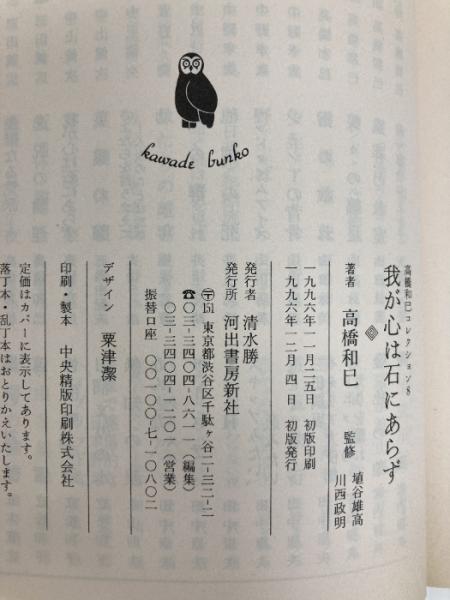 kawade bunko
高橋和巳コレクション8
我が心は石にあらず
著者 高橋和巳
監修 埴谷雄高
川西政明
一九九六年一一月二五日 初版印刷
一九九六年一二月 四日 初版発行
発行者 清水勝
発行所 河出書房新社
〒151 東京都渋谷区千駄ヶ谷二-三二-二
☎〇三-三四〇四-八六一一(編集)
〇三-三四〇四-一二〇一(営業)
振替口座 〇〇一〇〇-七-一〇八〇二
デザイン 粟津潔
印刷・製本 中央精版印刷株式会社
定価はカバーに表示してあります。
落丁本・乱丁本はおとりかえいたします。